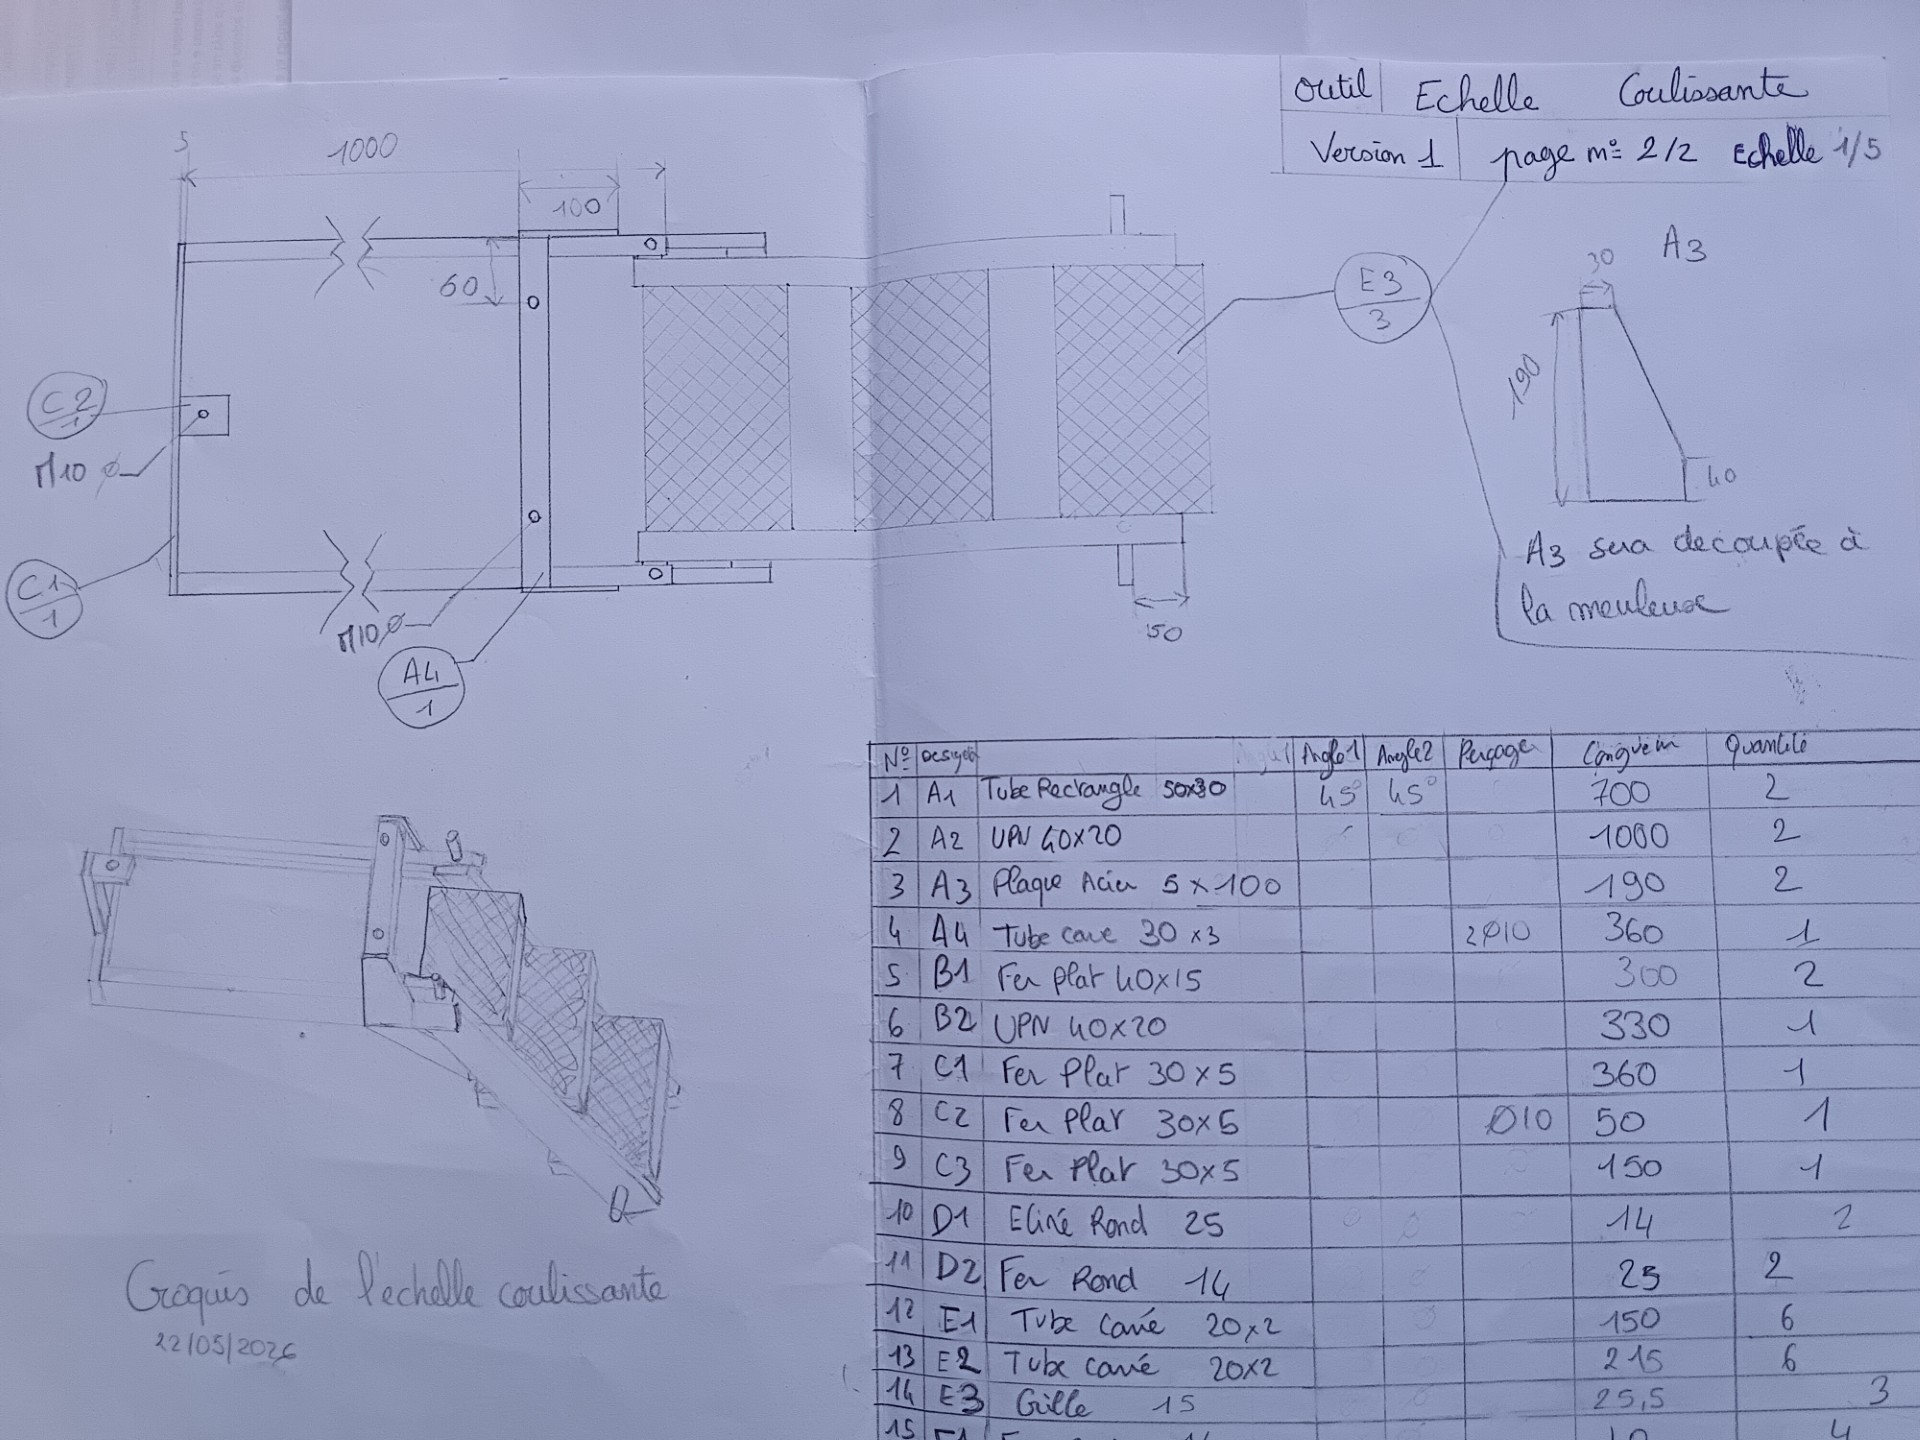 Outil Echelle Coulissante
Version 1 page n° 2/2 Echelle 1/5
5
1000
100
60
C2
1
M10 ⌀
C1
1
M10 ⌀
A4
1
E3
3
50
A3
30
190
40
A3 sera decoupée à
la meuleuse
N° Angle 1 Angle 2 Perçage Quantité
1 A1 Tube Rectrangle 50x30 45° 45° 700 2
2 A2 UPN 40x20 1000 2
3 A3 Plaque Acier 5 x 100 190 2
4 A4 Tube care 30 x3 2⌀10 360 1
5 B1 Fer plat 40x15 300 2
6 B2 UPN 40x20 330 1
7 C1 Fer Plat 30x5 360 1
8 C2 Fer Plat 30x5 ⌀10 50 1
9 C3 Fer Plat 30x5 150 1
10 D1 Rond 25 14 2
11 D2 Fer Rond 14 25 2
12 E1 Tube carré 20x2 150 6
13 E2 Tube carré 20x2 215 6
14 E3 Grille 15 25,5 3
15
Croquis de l'echelle coulissante
22/05/2026